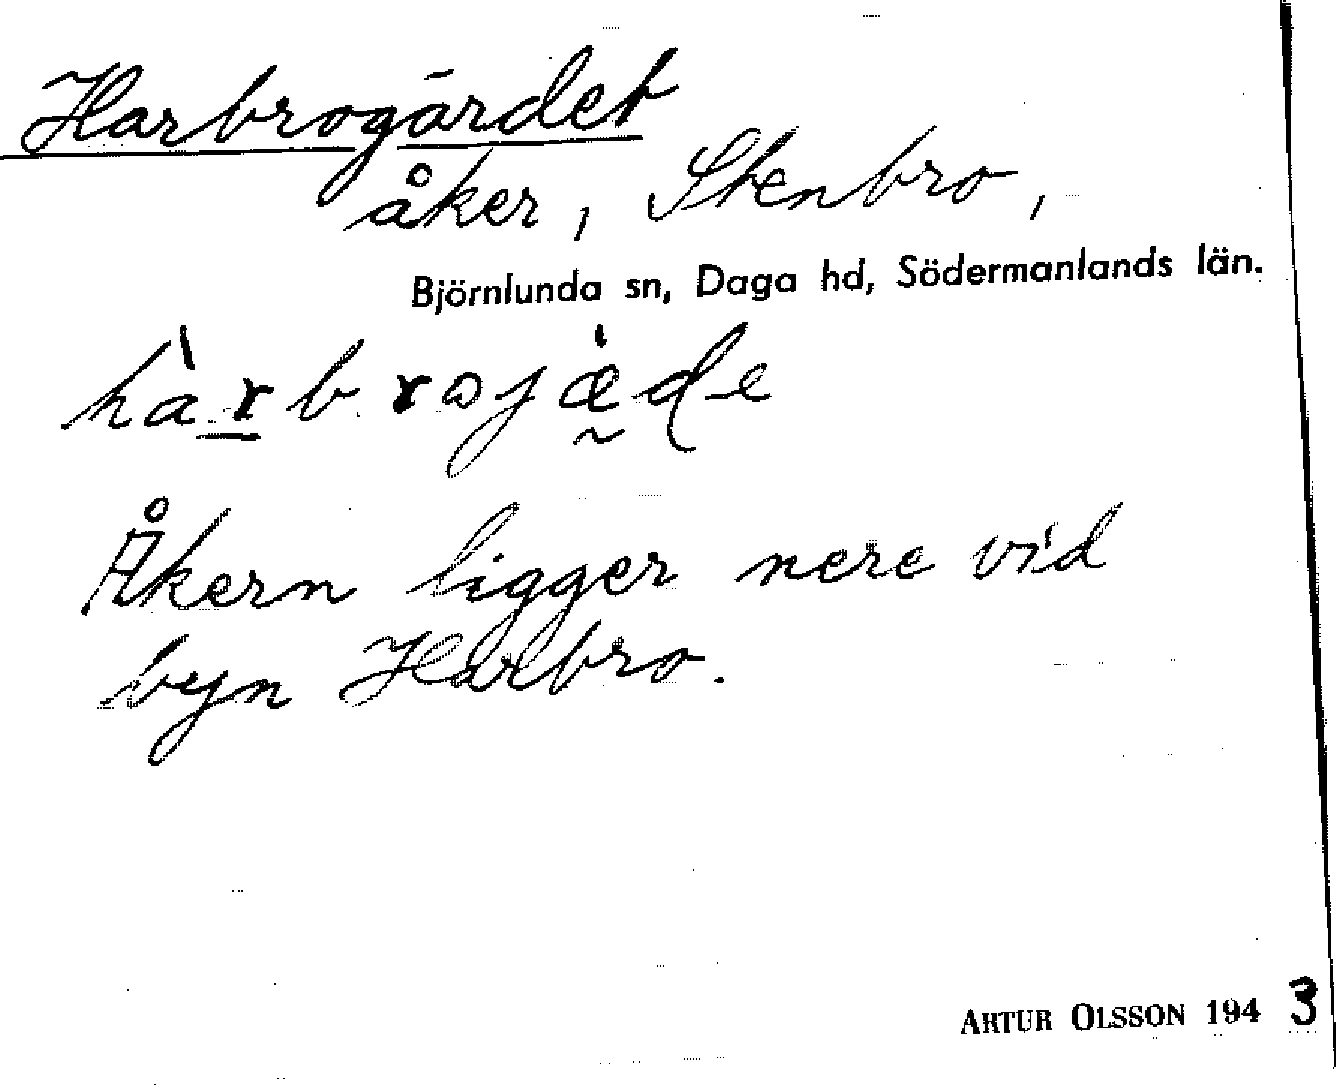 Harbrogärdet
åker, Stenbro,
Björnlunda sn, Daga hd, Södermanlands län.
hàrbrojæ̀de
Åkern ligger nere vid
byn Harbro.
ARTUR OLSSON 1943